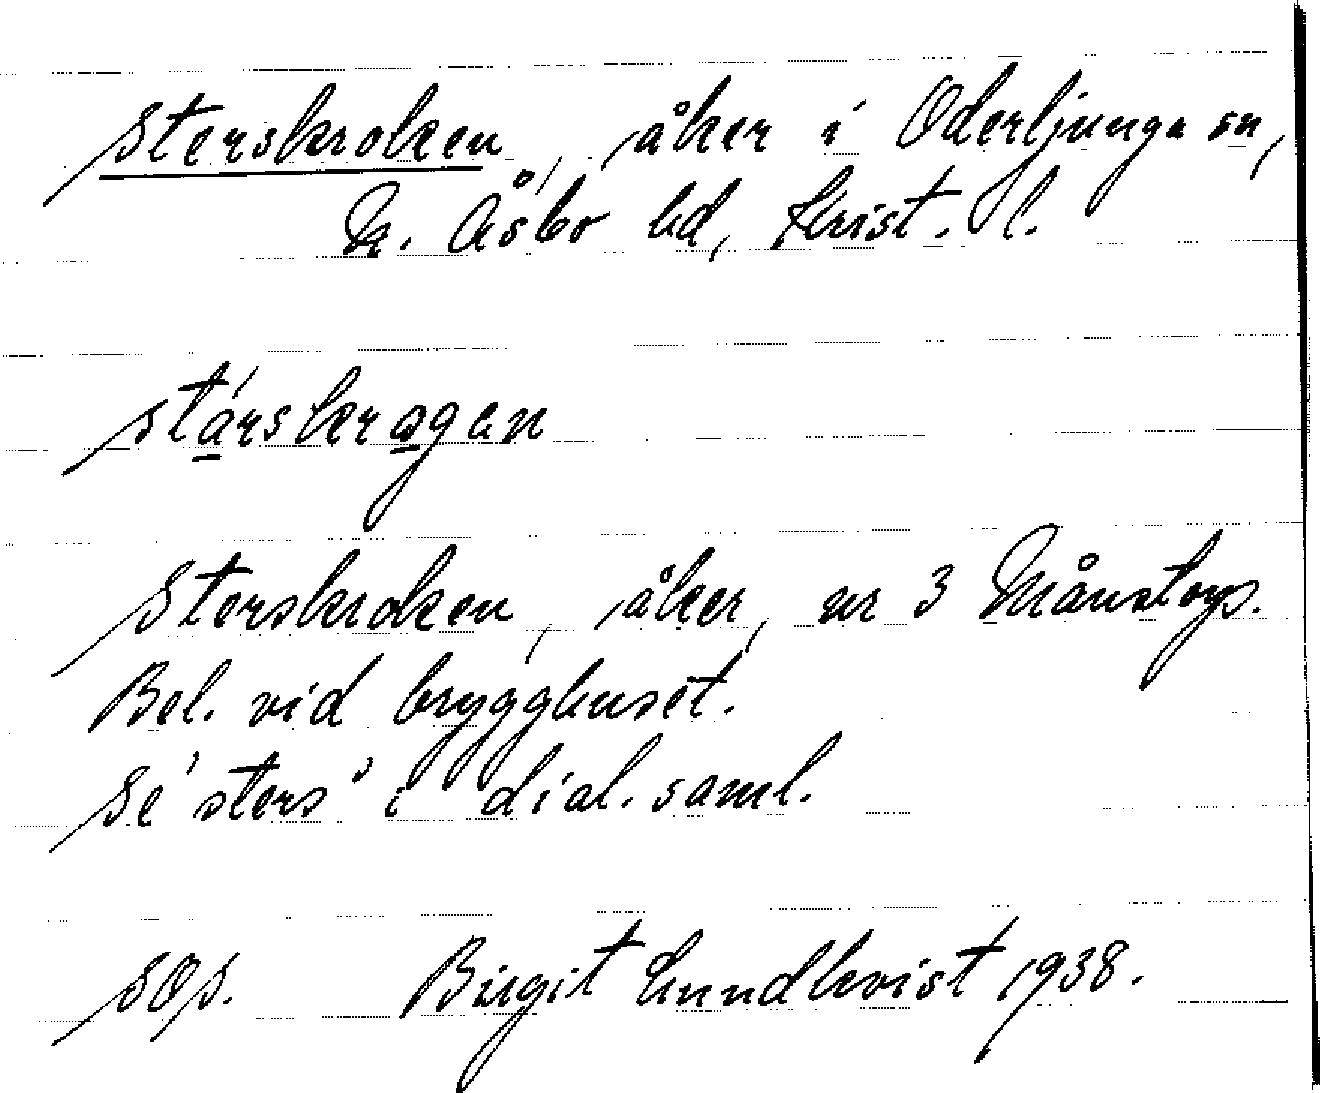 Sterskroken, åker i Oderljunga sn,
N. Åsbo hd, Krist. l.
stárskrogen
Sterskroken, åker, nr 3 Månstorp.
Bel. vid brygghuset.
Se 'sters' i dial. saml.
SOS. Birgit Lundkvist 1938.